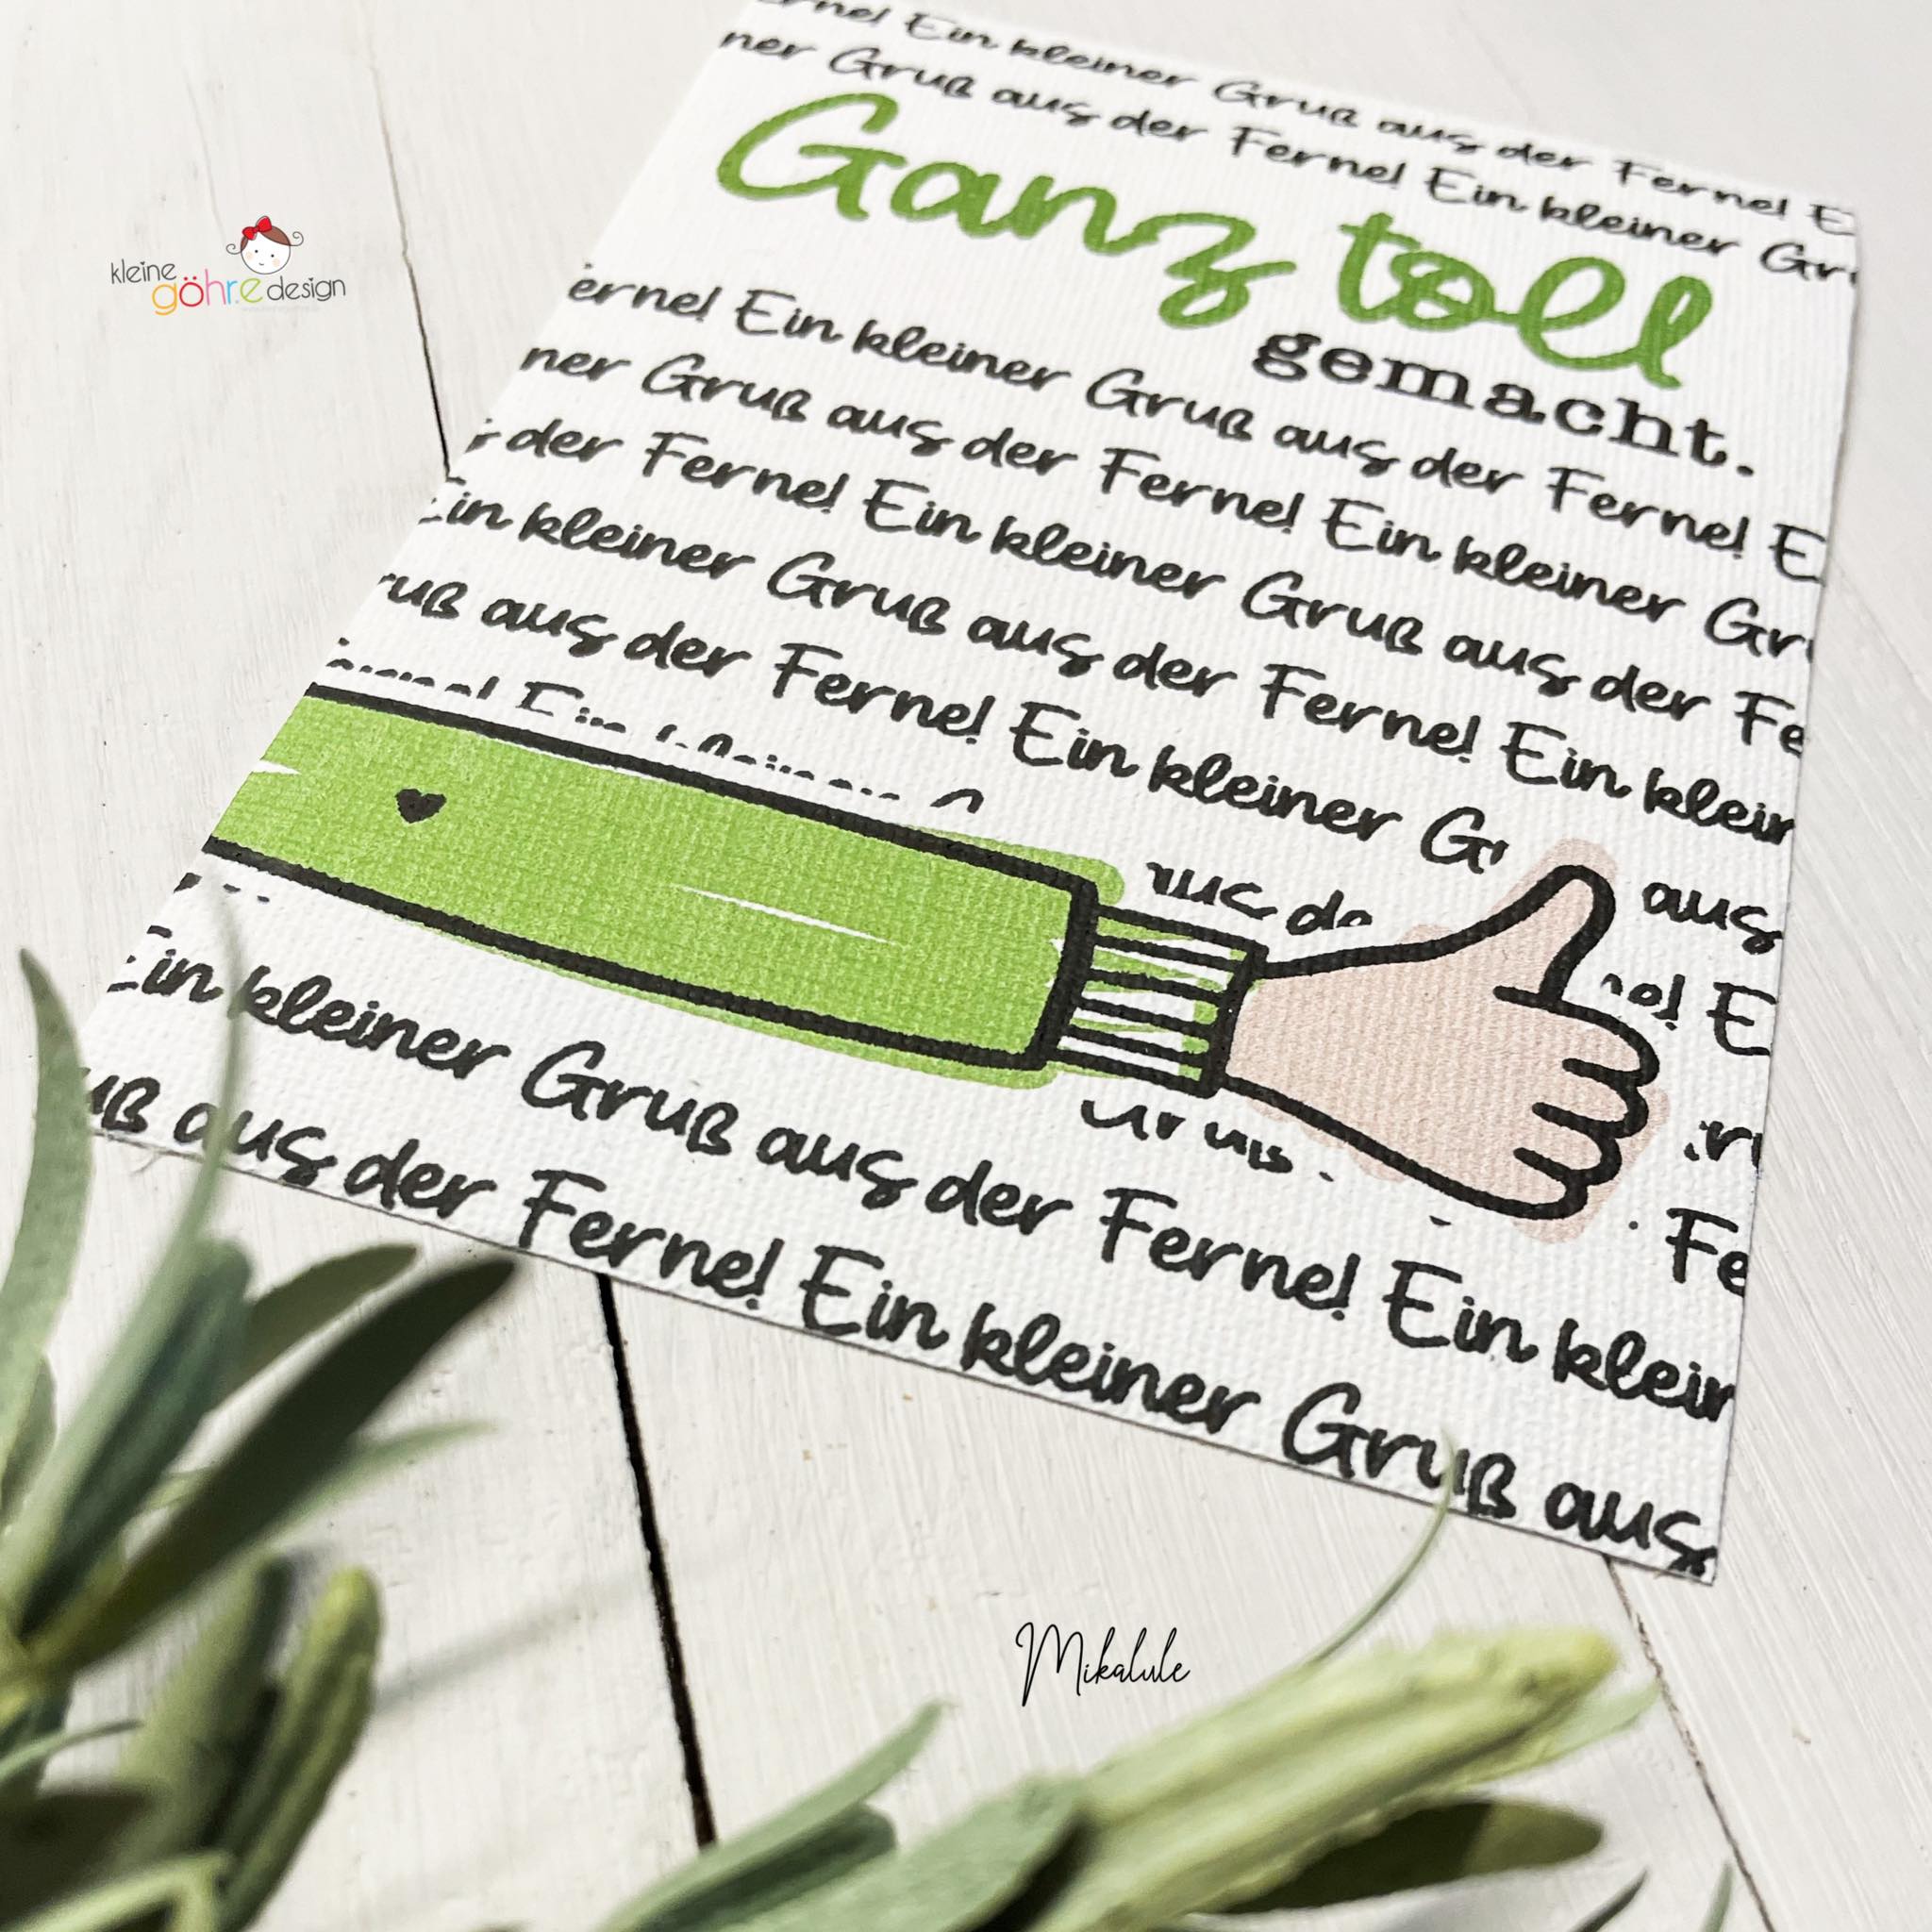 Ein kleiner Gruß aus der Ferne! E
ner Gruß aus der Ferne! Ein kleiner Gr
Ganz toll
gemacht.
kleine
göhre design
erne! Ein kleiner Gruß aus der Ferne! E
ner Gruß aus der Ferne! Ein kleiner Gru
der Ferne! Ein kleiner Gruß aus der Fe
Ein kleiner Gruß aus der Ferne! Ein klein
ruß aus der Ferne! Ein kleiner Gr aus
Ein kleiner
aus de ne! E
Ein kleiner Gruß aus der Ferne! Ein klein
uß aus der Ferne! Ein kleiner Gruß aus
Fe
Mikalule